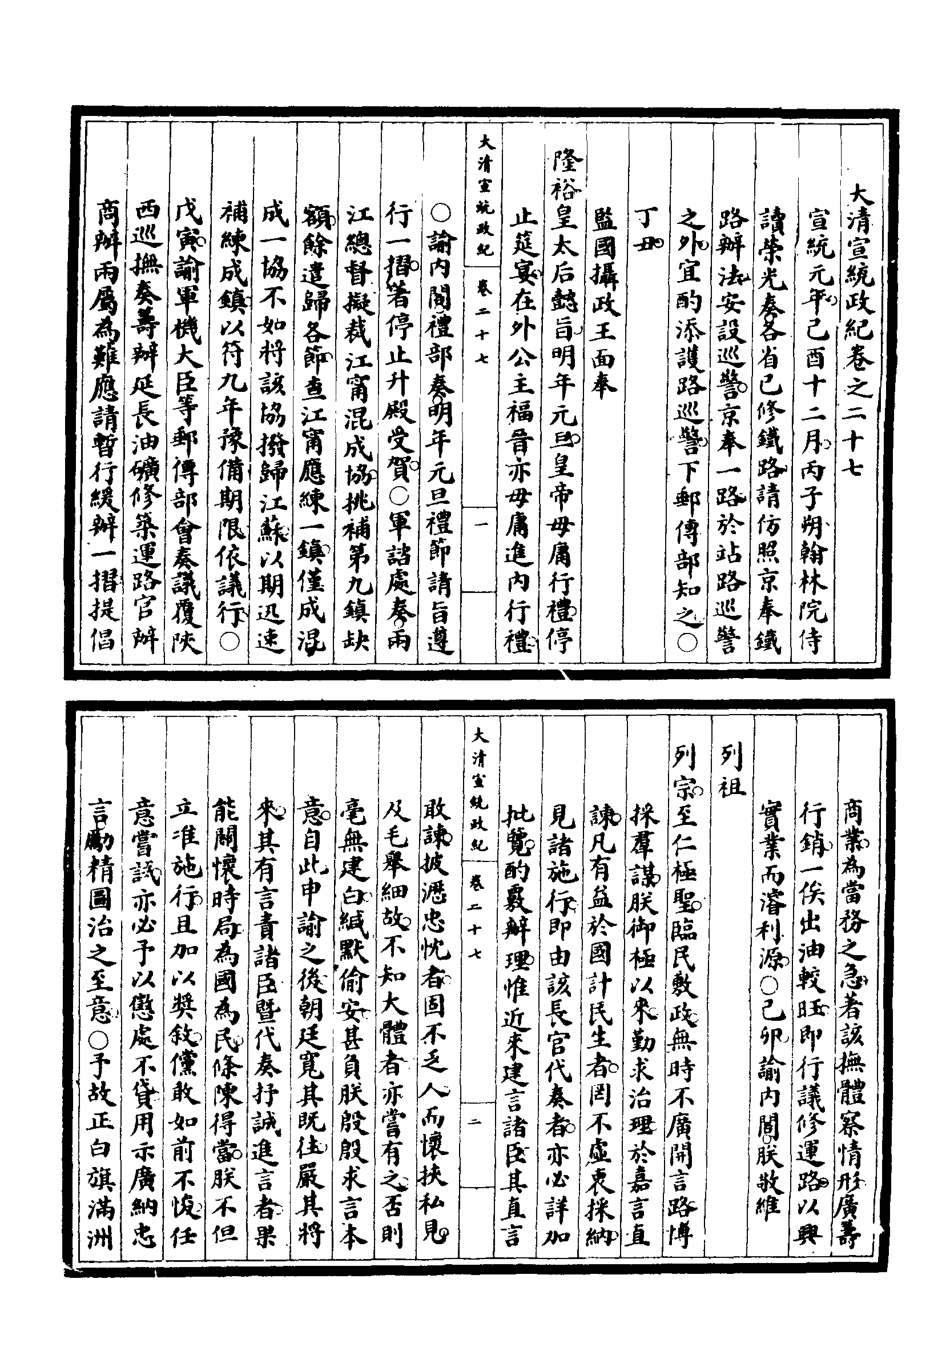 大清宣統政紀卷之二十七
宣統元年己酉十二月丙子朔翰林院侍
讀榮光奏各省已修鐵路請仿照京奉鐵
路辦法安設巡警京奉一路於站路巡警
之外宜酌添護路巡警下郵傳部知之○
丁丑
監國攝政王面奉
隆裕皇太后懿旨明年元旦皇帝毋庸行禮停
止筵宴在外公主福晉亦毋庸進內行禮
大清宣統政紀 卷二十七 一
○諭內閣禮部奏明年元旦禮節請旨遵
行一摺著停止升殿受賀○軍諮處奏兩
江總督擬裁江甯混成協挑補第九鎮缺
額餘遣歸各節查江甯應練一鎮僅成混
成一協不如將該協撥歸江蘇以期迅速
補練成鎮以符九年豫備期限依議行○
戊寅諭軍機大臣等郵傳部會奏議覆陝
西巡撫奏籌辦延長油礦修築運路官辦
商辦兩屬為難應請暫行緩辦一摺提倡
商業為當務之急著該撫體察情形廣籌
行銷一俟出油較旺即行議修運路以興
實業而濬利源○己卯諭內閣朕敬維
列祖
列宗至仁極聖臨民敷政無時不廣開言路博
採羣謀朕御極以來勤求治理於嘉言直
諫凡有益於國計民生者罔不虛衷採納
見諸施行即由該長官代奏者亦必詳加
批覽酌覈辦理惟近來建言諸臣其直言
大清宣統政紀 卷二十七 二
敢諫披瀝忠忱者固不乏人而懷挾私見
及毛舉細故不知大體者亦嘗有之否則
毫無建白緘默偷安甚負朕殷殷求言本
意自此申諭之後朝廷寬其既往嚴其將
來其有言責諸臣暨代奏抒誠進言者果
能關懷時局為國為民條陳得當朕不但
立准施行且加以獎敘儻敢如前不悛任
意嘗試亦必予以懲處不貸用示廣納忠
言勵精圖治之至意○予故正白旗滿洲